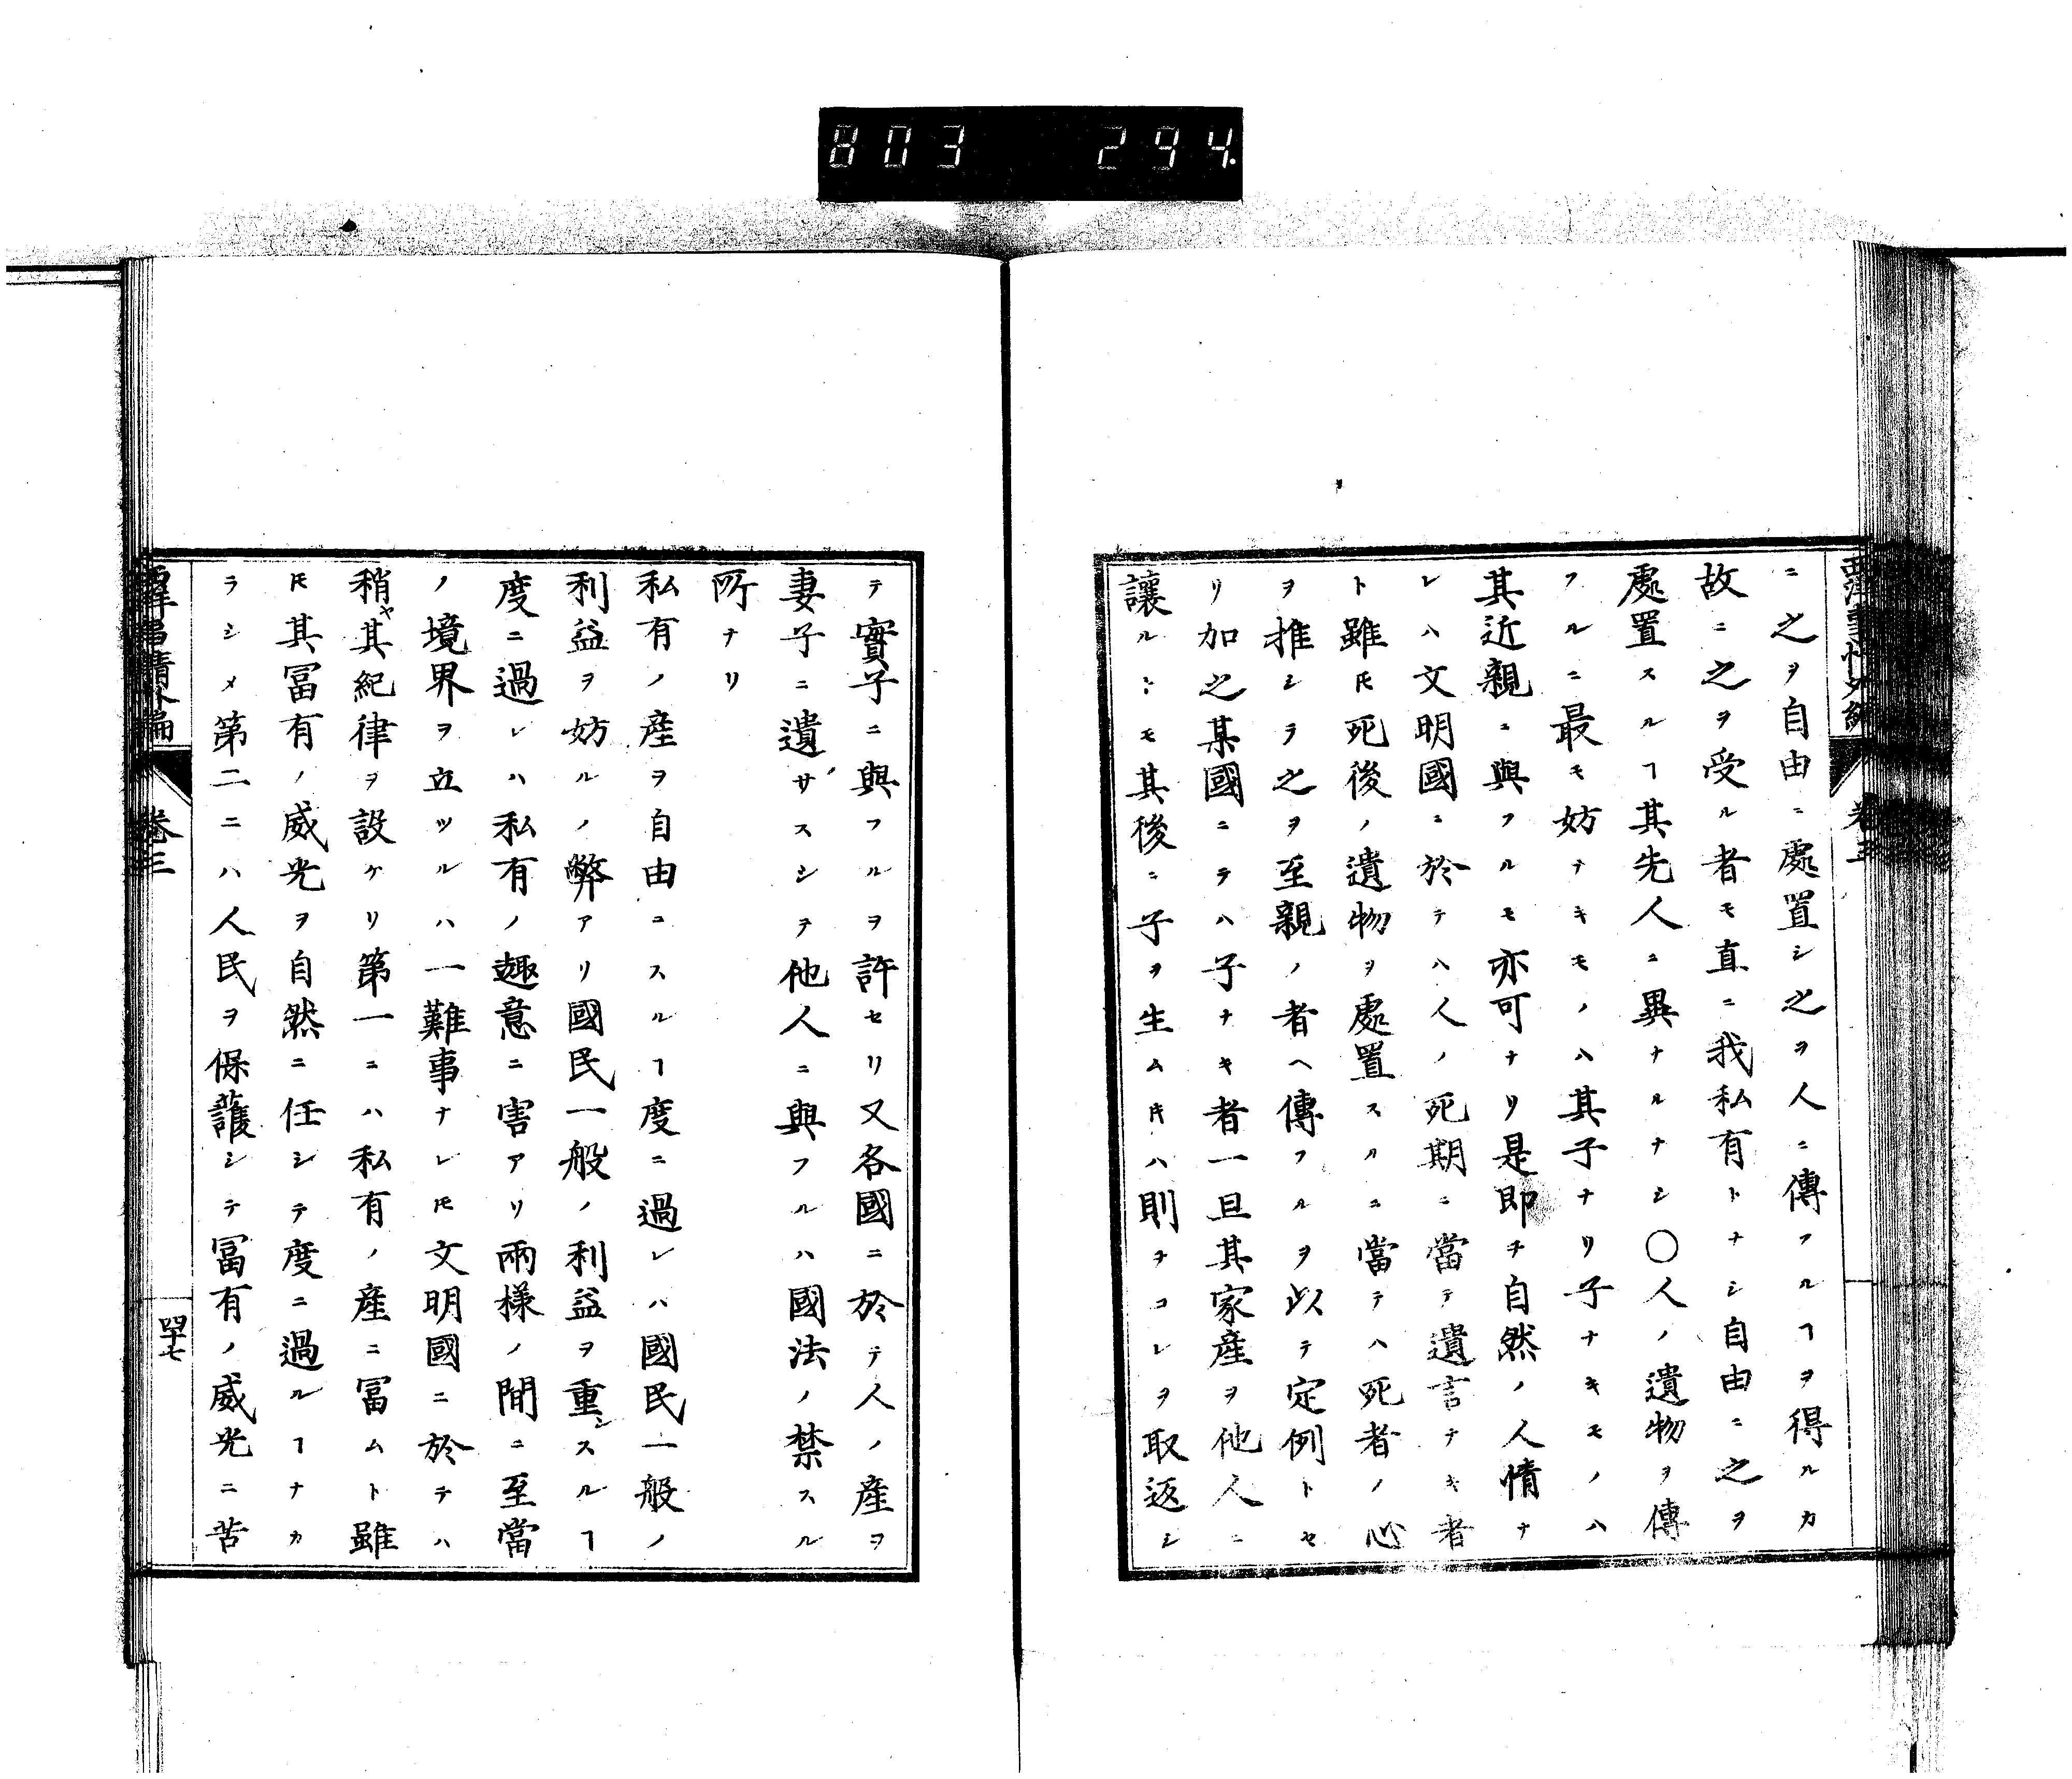 803 294.
西洋事情外編 卷三
ニ之ヲ自由ニ處置シ之ヲ人ニ傳フルヿヲ得ルカ
故ニ之ヲ受ル者モ直ニ我私有トナシ自由ニ之ヲ
處置スルヿ其先人ニ異ナルナシ〇人ノ遺物ヲ傳
フルニ最モ妨ナキモノハ其子ナリ子ナキモノハ
其近親ニ與フルモ亦可ナリ是即チ自然ノ人情ナ
レハ文明國ニ於テハ人ノ死期ニ當テ遺言ナキ者
ト雖𪜈死後ノ遺物ヲ處置スルニ當テハ死者ノ心
ヲ推シテ之ヲ至親ノ者ヘ傳フルヲ以テ定例トセ
リ加之某國ニテハ子ナキ者一旦其家産ヲ他人ニ
讓ルトモ其後ニ子ヲ生ムキハ則チコレヲ取返シ
テ實子ニ與フルヲ許セリ又各國ニ於テ人ノ産ヲ
妻子ニ遺サスシテ他人ニ與フルハ國法ノ禁スル
所ナリ
私有ノ産ヲ自由ニスルヿ度ニ過レハ國民一般ノ
利益ヲ妨ルノ弊アリ國民一般ノ利益ヲ重ンスルヿ
度ニ過レハ私有ノ趣意ニ害アリ兩樣ノ間ニ至當
ノ境界ヲ立ツルハ一難事ナレ𪜈文明國ニ於テハ
稍ヤ其紀律ヲ設ケリ第一ニハ私有ノ産ニ冨ムト雖
𪜈其冨有ノ威光ヲ自然ニ任シテ度ニ過ルヿナカ
ラシメ第二ニハ人民ヲ保護シテ冨有ノ威光ニ苦
西洋事情外編 卷三 四十七